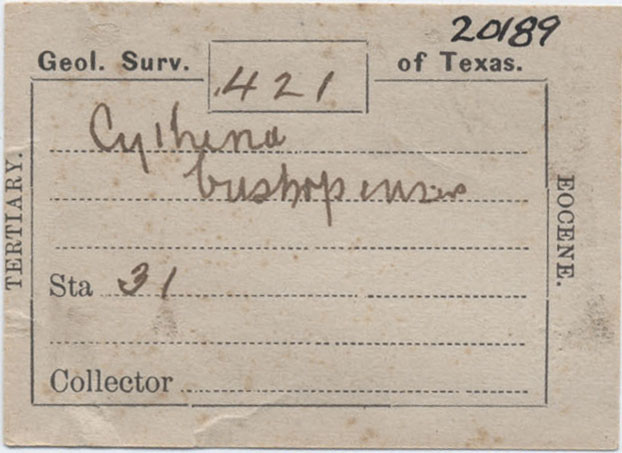 20189
Geol. Surv. 421 of Texas.
TERTIARY.
Cytherea
EOCENE.
Sta 31
Collector